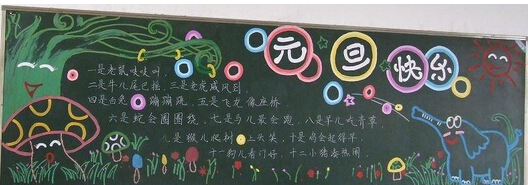 元旦快乐
一是老鼠吱吱叫,
二是牛儿尾巴摇,三是老虎威风到,
四是白兔 蹦蹦跳,五是飞龙像座桥,
六是蛇会圈圈绕,七是马儿最会跑,八是羊儿吃青草,
九是猴儿爬树 上头笑,十是鸡会起得早,
十一狗儿看门好,十二小猪凑热闹